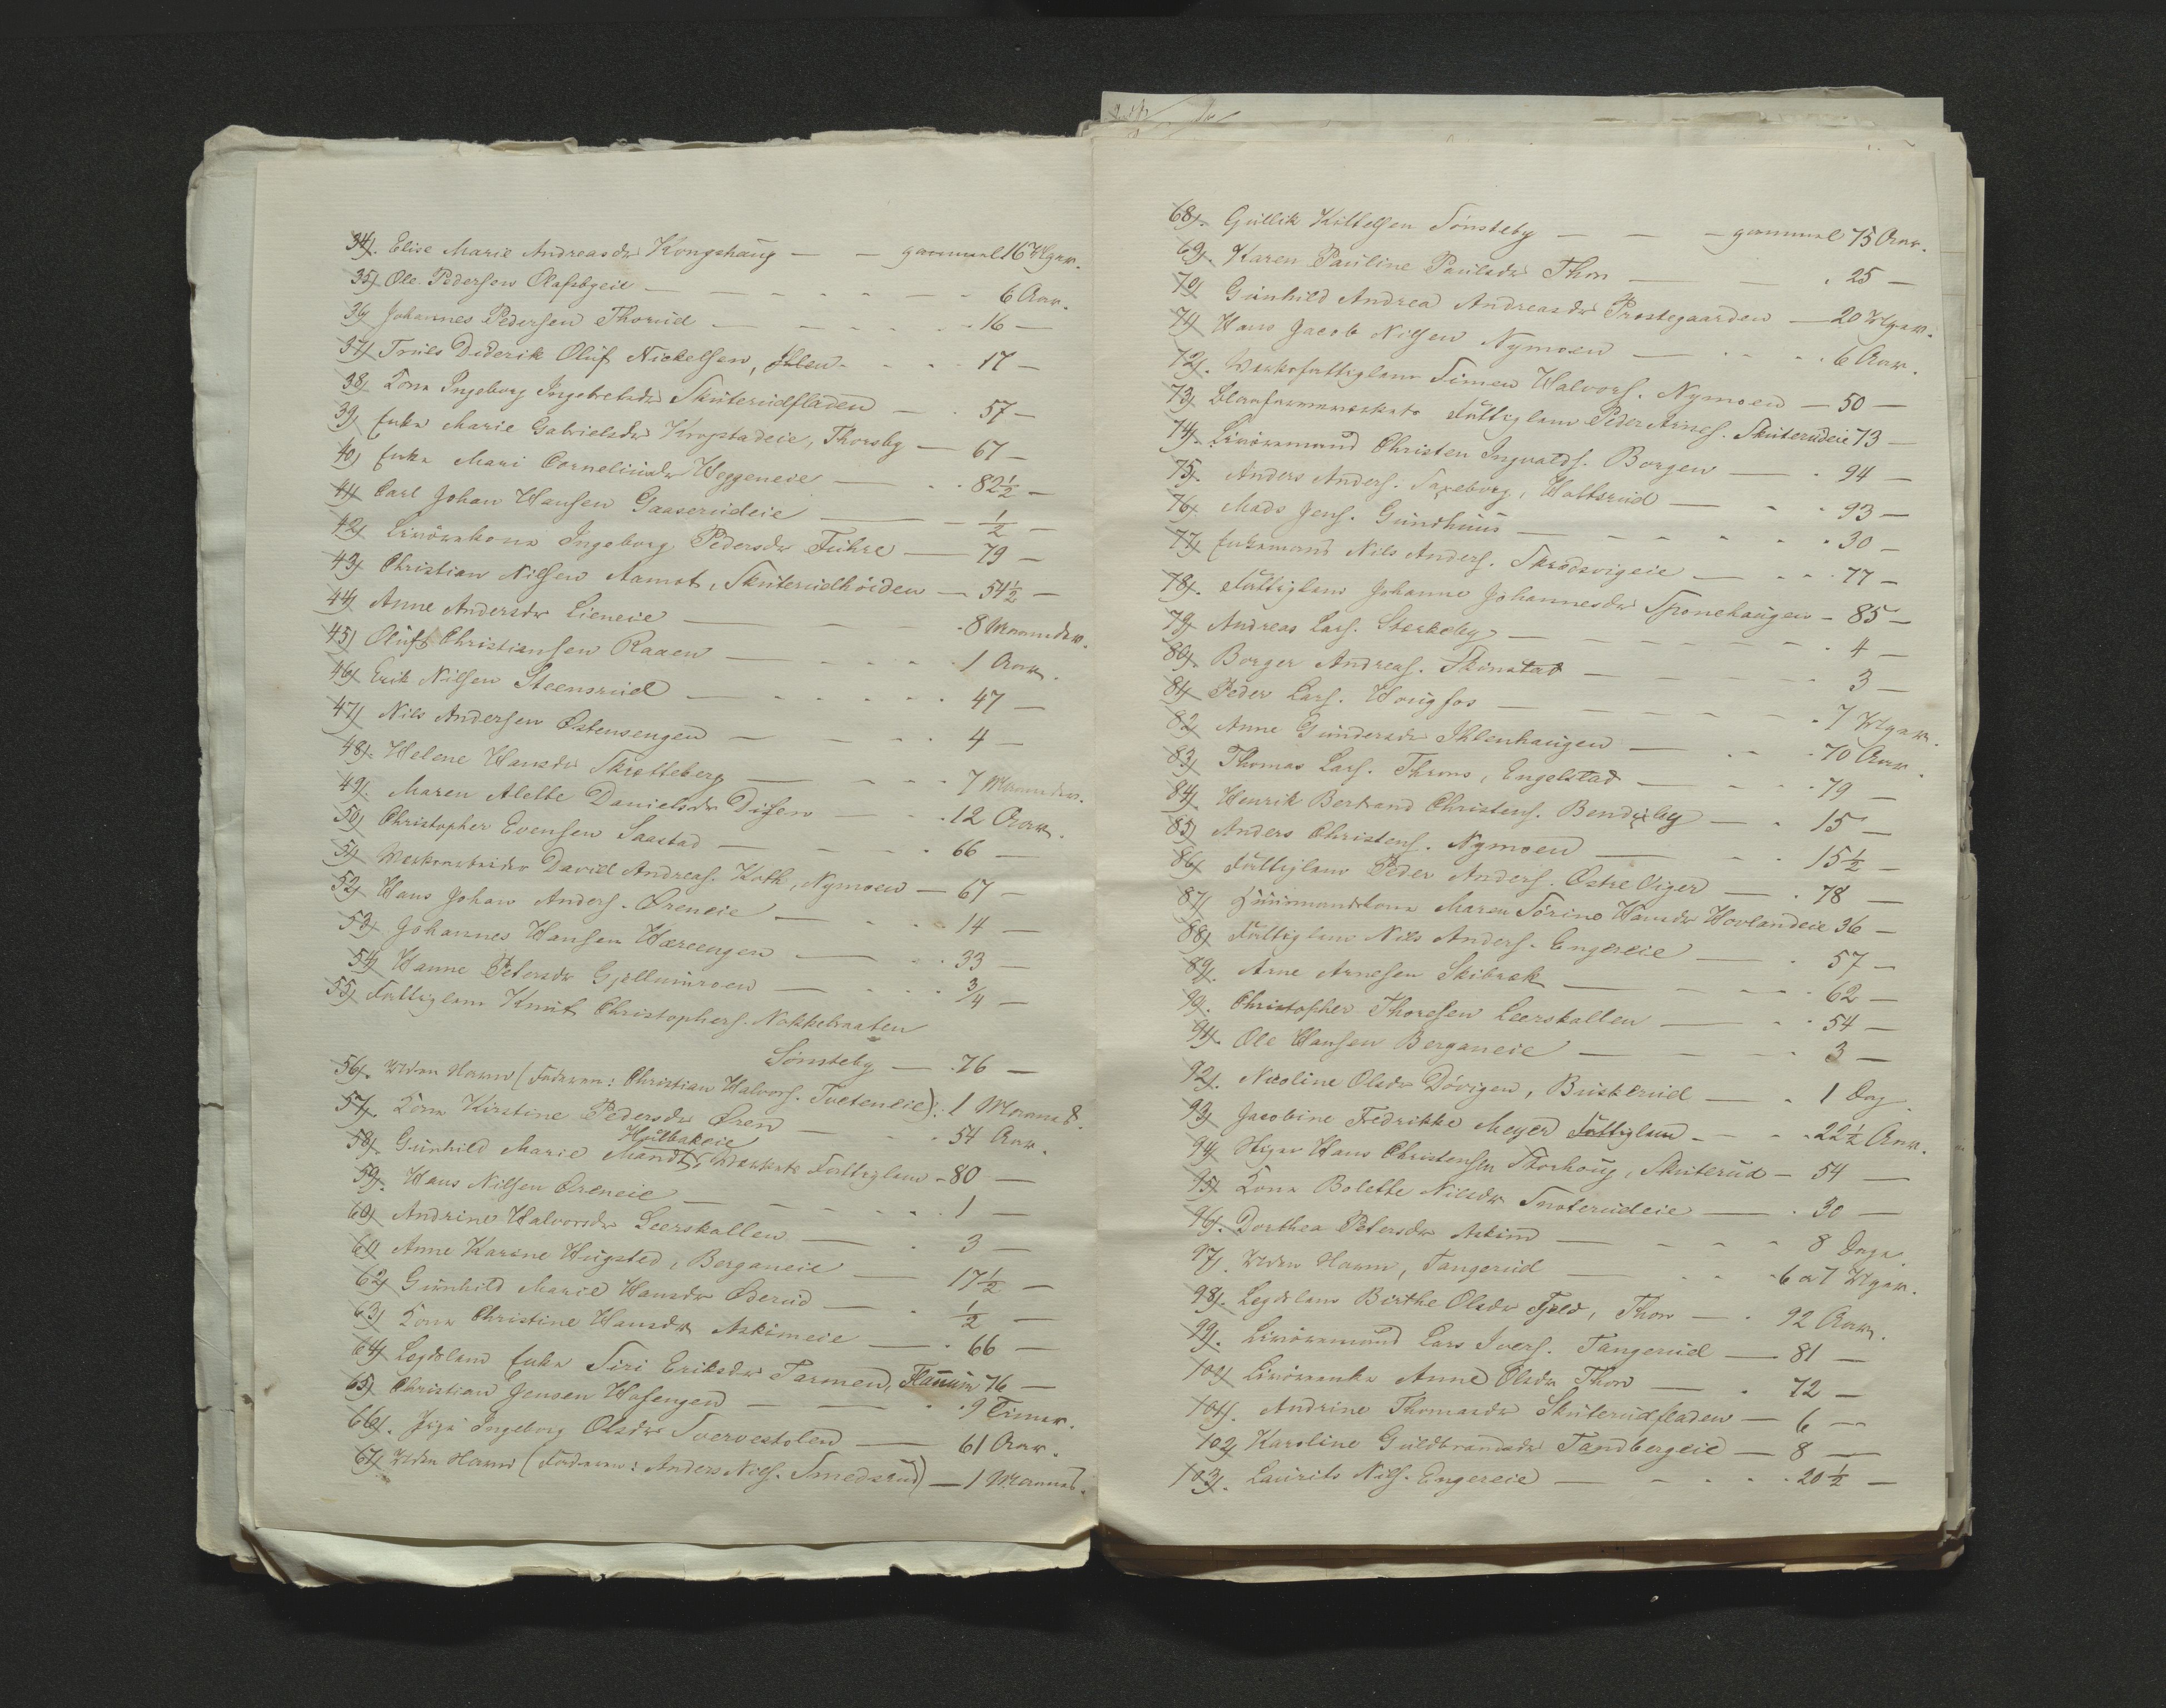 34). Elise Marie Andreasdr Kongshaug — — gammel 16 Uger.
35) Ole Pedersen Olafsbyeie — 6 Aar.
36) Johannes Pedersen Thorud — 16 —
37) Truls Diderik Oluf Nickelsen, Ihlen - 17 —
38) Kone Ingeborg Ingebretsdr Skuterudfladen — 57 —
39) Enke Marie Gabrielsdr Krogstadeie, Thorsby — 67 —
40) Enke Mari Corneliusdr Heggeneie — 82½ —
41) Carl Johan Hansen Gaaserudeie — ½ —
42) Livörekone Ingeborg Pedersdr Fuhre — 79 —
43) Christian Nilsen Aamot, Skuterudhöiden — 54½ —
44) Anne Andersdr Lieneie — 8 Maaneder.
45) Oluf Christiansen Raaen — 1 Aar.
46) Erik Nilsen Steensrud — 47 —
47) Nils Andersen Østensengen — 4 —
48). Helene Hansdr Skrotteberg — 7 Maaneder.
49). Maren Alette Danielsdr Disen — 12 Aar.
50) Christopher Evensen Saastad — 66 —
51) Værksarbeider David Andreas. Koth, Nymoen — 67 —
52) Hans Johan Anders. Øreneie — 14 —
53) Johannes Hansen Hæreengen — 33 —
54) Hanne Petersdr Gjellumroen — ¾ —
55) Fattiglem Knut Christophers. Nokkebraaten
Sönsteby — 76 —
56). Uden Navn (Faderen: Christian Halvors. Tveteneie): 1 Maaned.
57). Kone Kirstine Pedersdr Øren — 54 Aar.
Hulbakeie
58). Gunhild Marie Mandt, Værkets Fattiglem - 80 —
59). Hans Nilsen Øreneie — 1 —
60) Andrine Halvorsdr Leerskallen — 3 —
61) Anne Karine Hugsted, Berganeie — 17½ —
62) Gunhild Marie Hansdr Øderud — ½ —
63) Kone Christine Hansdr Askimeie — 66 —
64) Legdslem Enke Siri Eriksdr Tarmen, Flannum 76 —
65) Christian Jensen Hasengen — 9 Timer.
66). Pige Ingeborg Olsdr Tverrestolen — 61 Aar.
67) Uden Navn (Faderen: Anders Nils. Smedsrud) — 1 Maaned.
68). Gullik Kittelsen Sönsteby — — gammel 75 Aar.
69). Karen Pauline Paulsdr Thon — 25 —
70) Gunhild Andrea Andreasdr Præstegaarden — 20 Uger.
71) Hans Jacob Nilsen Nymoen — 6 Aar.
72). Værksfattiglem Simen Halvors. Nymoen — 50 —
73) Blaafarveværkets Fattiglem Peder Arnes. Skuterudeie 73 —
74). Livöremand Christen Ingvalds. Borgen — 94 —
75). Anders Anders. Saxeborg, Holtsrud — 93 —
76) Mads Jens. Gundhuus — 30 —
77) Enkemand Nils Anders. Skredsvigeie — 77 —
78). Fattiglem Johanne Johannesdr Sponehaugen — 85 —
79) Andreas Lars. Sterkeby — 4 —
80). Borger Andreas. Skinstad — 3 —
81) Peder Lars. Hougfos — 7 Uger.
82) Anne Gundersdr Ihlenhaugen — 70 Aar.
83) Thomas Lars. Throns, Engelstad — 79 —
84) Henrik Bertrand Christens. Bendixby — 15 —
85) Anders Christens. Nymoen — 15½ —
86) Fattiglem Peder Anders. Østre Viger — 78 —
87) Huusmandskone Maren Sörine Hansdr Hovlandeie 36 —
88) Fattiglem Nils Anders. Engereie — 57 —
89). Arne Arnesen Skibræk — 62 —
90). Christopher Thoresen Leerskallen — 54 —
91). Ole Hansen Berganeie — 3 —
92). Nicoline Olsdr Dövigen, Buskerud — 1 Dag.
93) Jacobine Fredrikke Meyer Fattiglem — 22½ Aar.
94) Stiger Hans Christensen Storhoug, Skuterud — 54 —
95) Kone Bolette Nilsdr Snoterudeie — 30 —
96). Dorthea Petersdr Askim — 8 Dage
97). Uden Navn, Tangerud — 6 a 7 Uger.
98). Legdslem Birthe Olsdr Fjeld, Thon — 92 Aar.
99). Livöremand Lars Ivers. Tangerud — 81 —
100) Livöreenke Anne Olsdr Thon — 72 —
101). Andrine Thomasdr Skuterudfladen — 6 —
102) Karoline Guldbrandsdr Tandbergeie — 8 —
103). Laurits Nils. Engereie — 20½ —